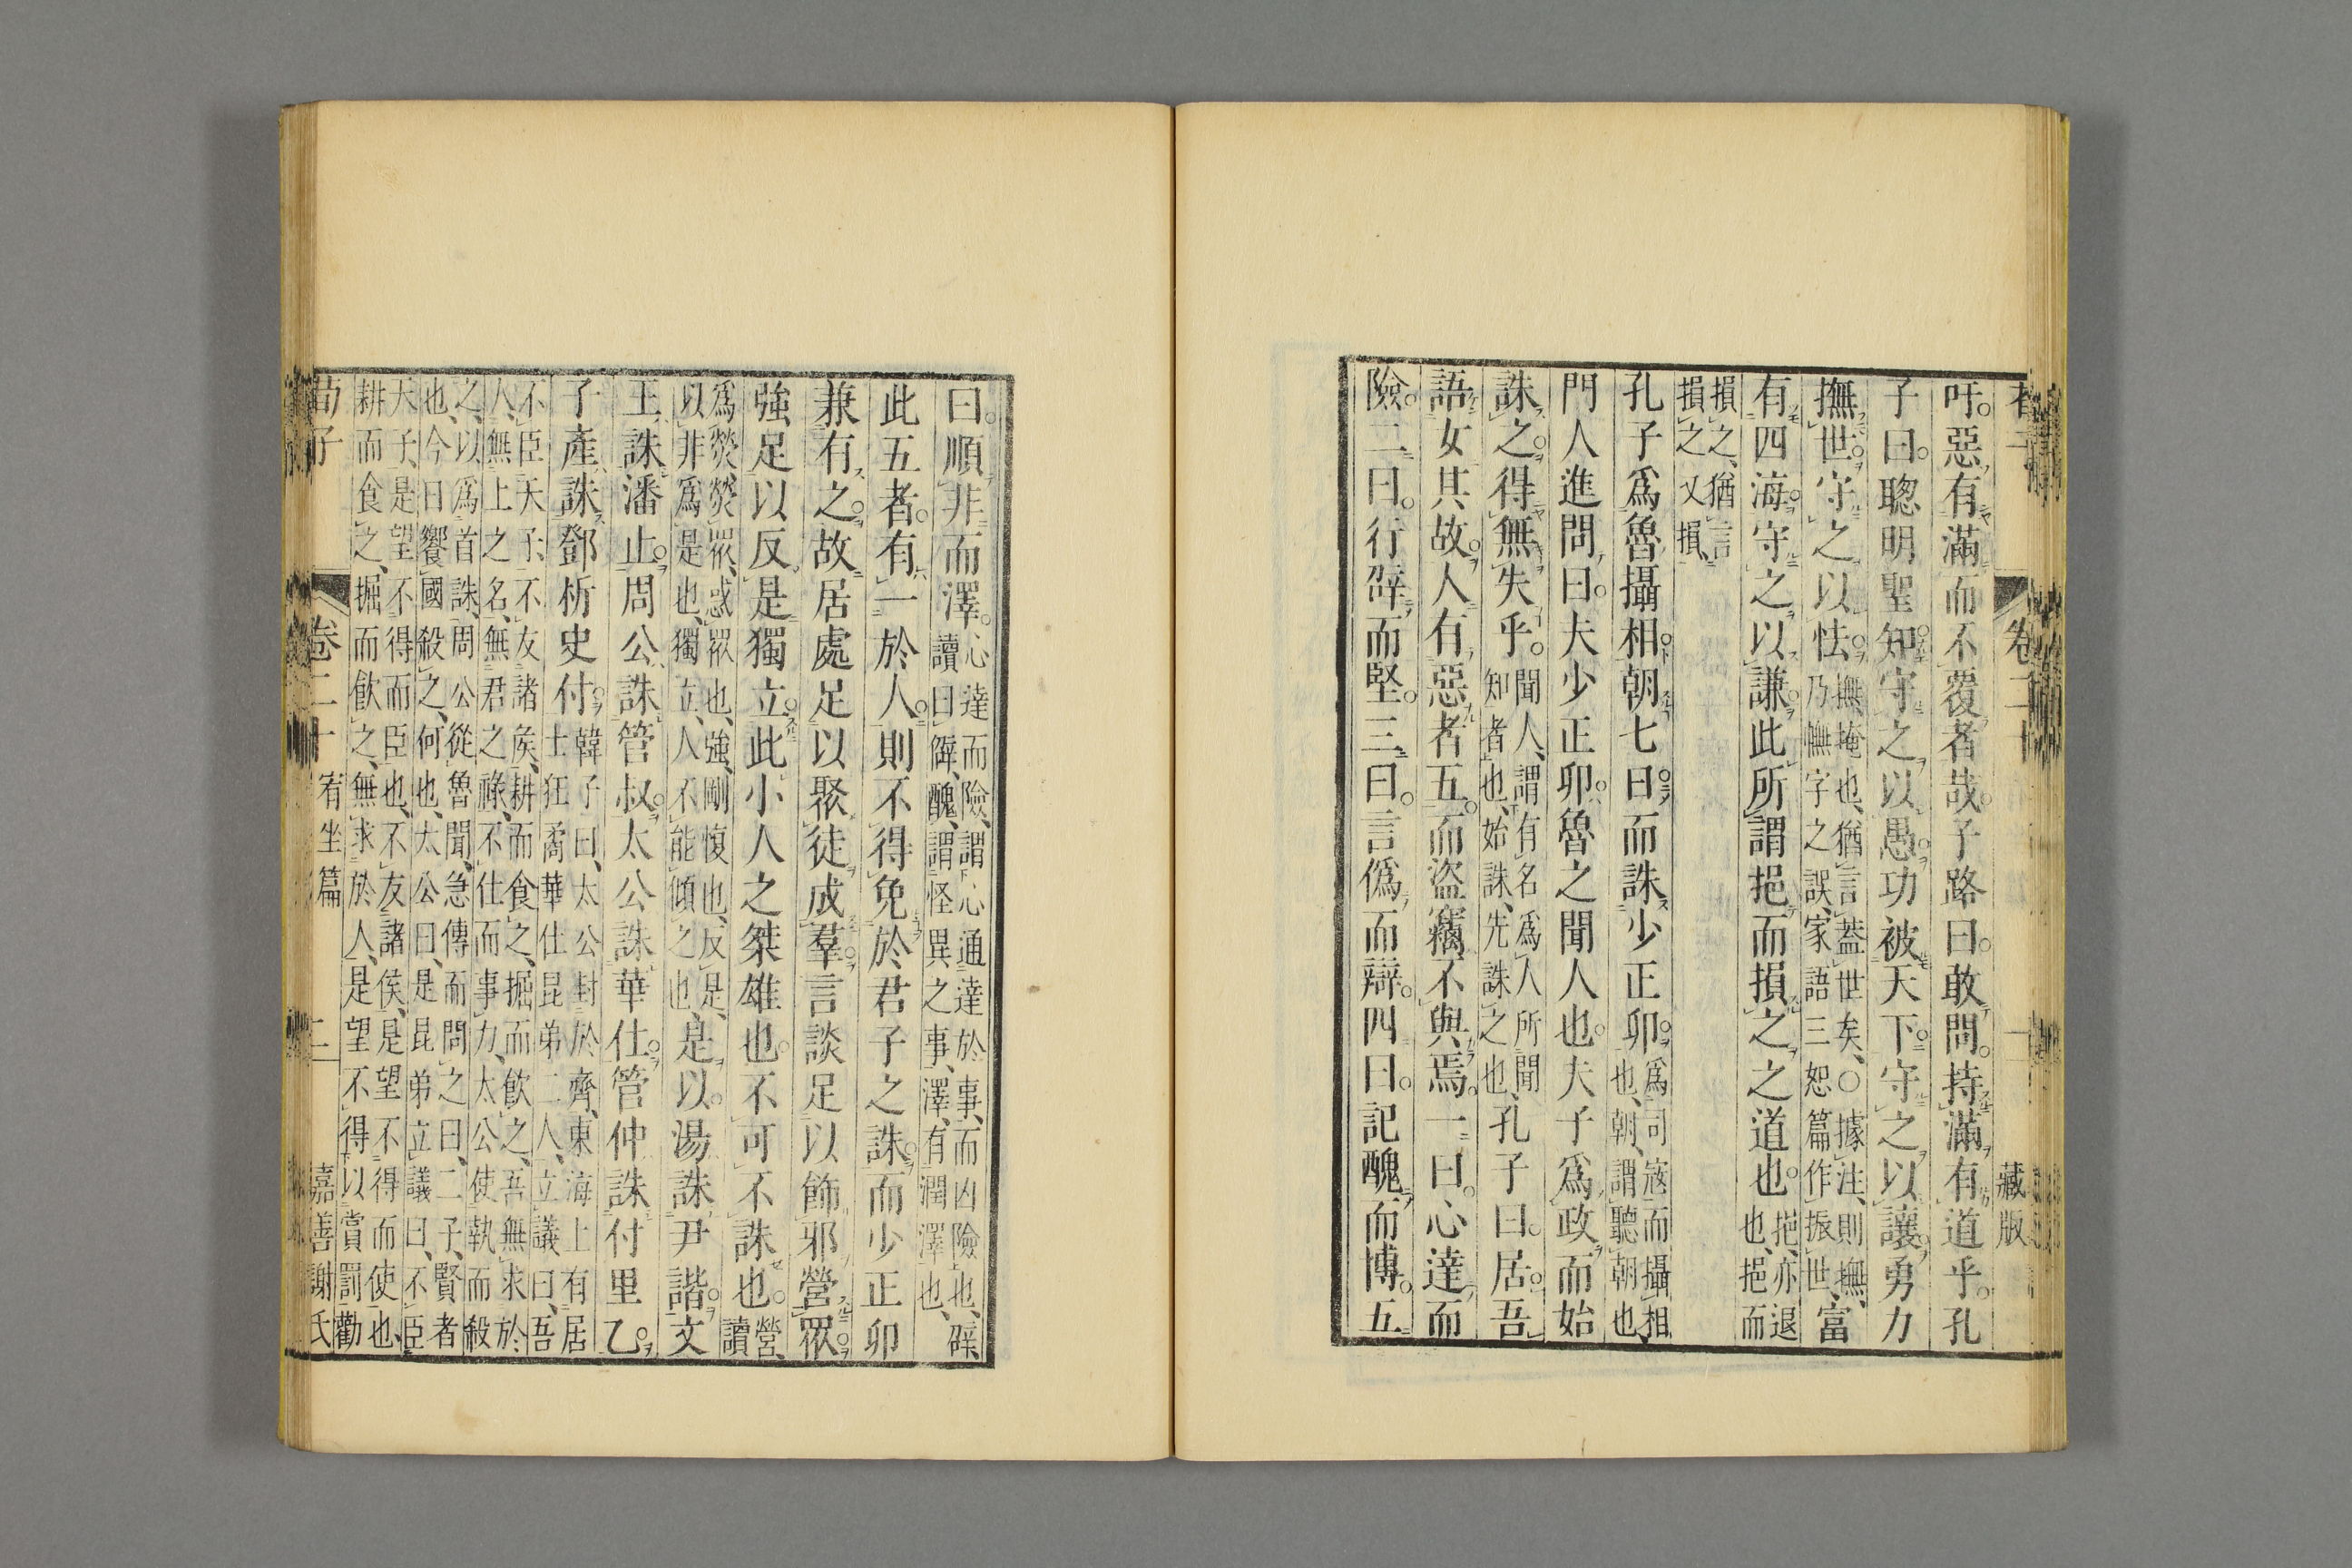 卷二十 藏版
吁。惡有滿而不覆者哉。子路曰。敢問。持滿有道乎。孔
子曰。聰明聖知守之以愚。功被天下。守之以讓。勇力
撫世。守之以怯。撫掩也、猶言蓋世矣、○據注、則撫、
乃幠字之誤、家語三恕篇作振世、富
有四海。守之以謙。此所謂挹而損之之道也。挹、亦退
也、挹而
損之、猶言
損之又損、
孔子爲魯攝相。朝七日。而誅少正卯。爲司寇而攝相
也、朝、謂聽朝也、
門人進問曰。夫少正卯。魯之聞人也。夫子爲政而始
誅之。得無失乎。聞人、謂有名爲人所聞
知者也、始誅、先誅之也、孔子曰。居。吾
語女其故。人有惡者五。而盜竊不與焉。一曰。心達而
險。二曰。行辟而堅。三曰。言僞而辯。四曰。記醜而博。五
曰。順非而澤。心達而險、謂心通達於事、而凶險也、辟、
讀曰僻、醜、謂怪異之事、澤、有潤澤也、
此五者。有一於人。則不得免於君子之誅。而少正卯
兼有之。故居處足以聚徒成羣。言談足以飾邪營衆。
強足以反是獨立。此小人之桀雄也。不可不誅也。營、
讀
爲熒、熒衆、惑衆也、強、剛愎也、反是、
以非爲是也、獨立、人不能傾之也、是以。湯誅尹諧。文
王誅潘止。周公誅管叔。太公誅華仕。管仲誅付里乙。
子產誅鄧析史付。韓子曰、太公封於齊、東海上有居
士狂矞華仕昆弟二人、立議曰、吾
不臣天子、不友諸矦、耕而食之、掘而飲之、吾無求於
人、無上之名、無君之祿、不仕而事力、太公使執而殺
之、以爲首誅、周公從魯聞、急傳而問之曰、二子、賢者
也、今日饗國殺之、何也、太公曰、是昆弟立議曰、不臣
天子、是望不得而臣也、不友諸侯、是望不得而使也、
耕而食之、掘而飲之、無求於人、是望不得以賞罰勸
荀子 卷二十 宥坐篇 二 嘉善謝氏